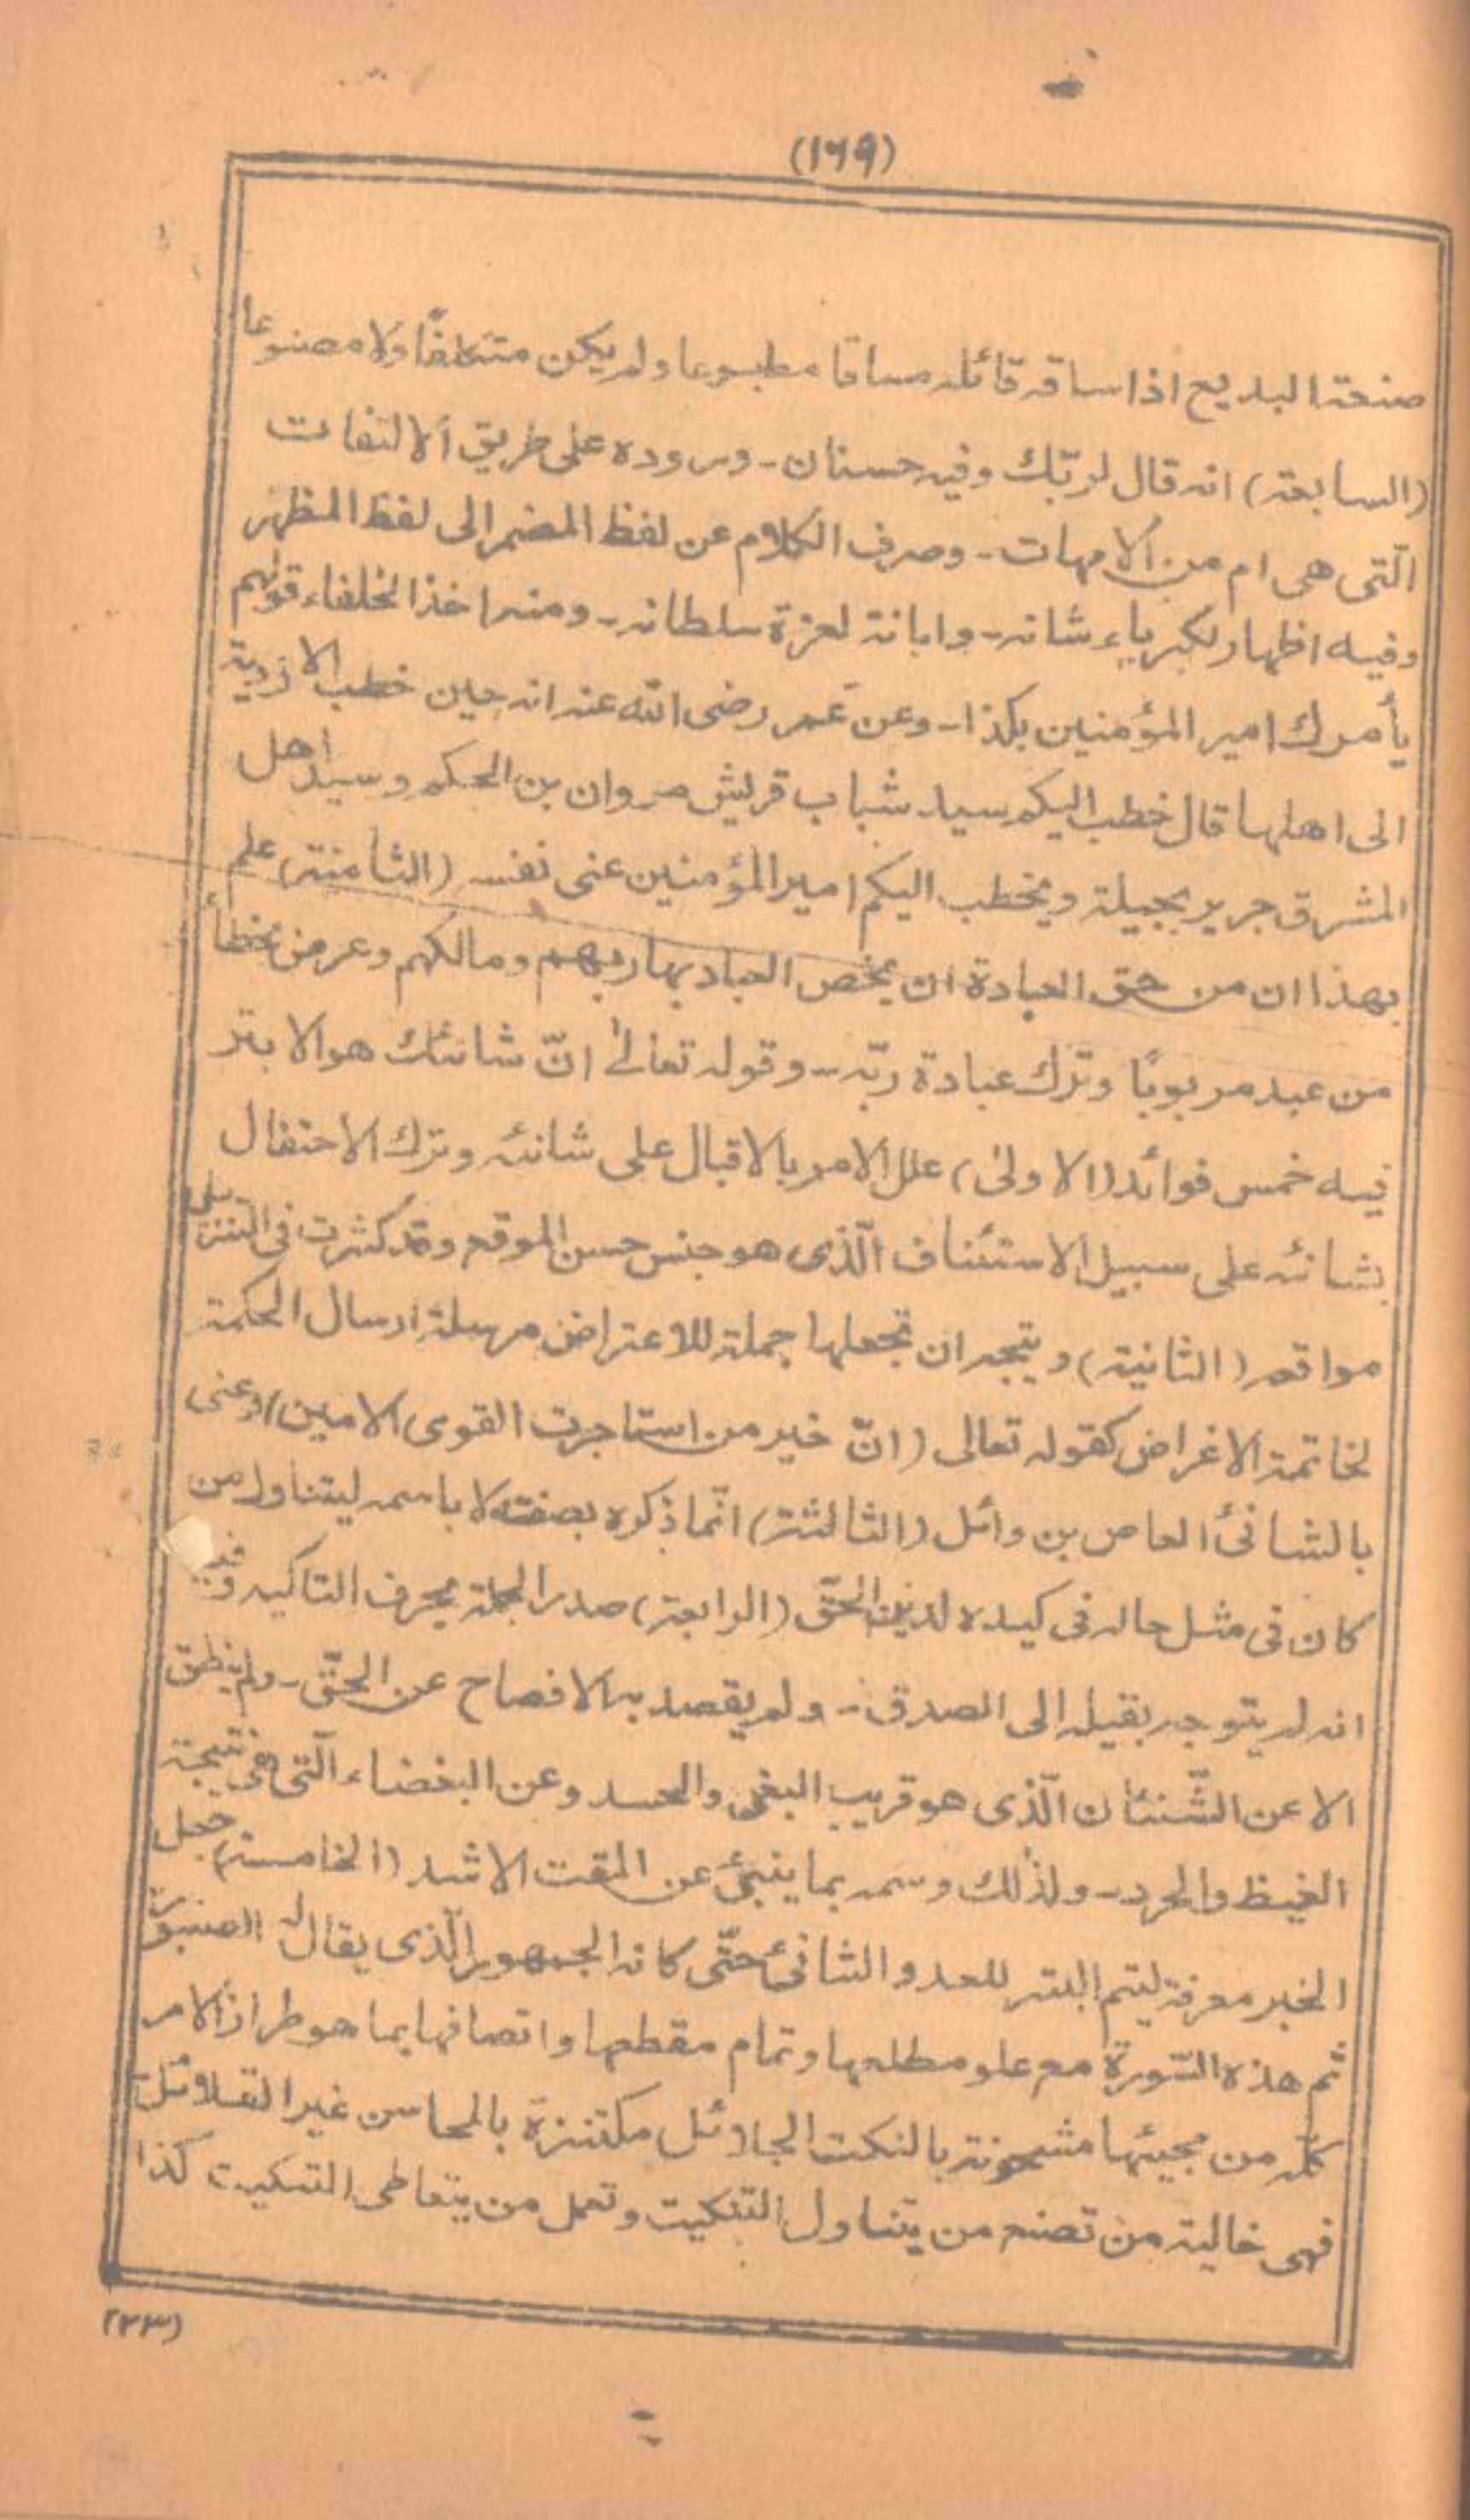 (١٦٩)
صنعة البديع اذا ساقه قائله مساقا مطبوعا ولم يكن متكلفًا وَلا مصنوعا
(السابعة) انه قال لربّك وفيه حسنان - وروده على طريق الالتفات
الّتى هى ام من الامهات - وصرف الكلام عن لفظ المضمر الى لفظ المظهر
وفيه اظهار لكبرياء شانه - وابانة لعزة سلطانه - ومنه اخذ الخلفاء قولهم
يأمرك امير المؤمنين بكذا - وعن عمر رضى الله عنه انه حين خطب الازدية
الى اهلها قال خطب اليكم سيد شباب قريش مروان بن الحكم وسيد اهل
المشرق جرير بجيلة ويخطب اليكم امير المؤمنين عنى نفسه (الثامنة) علم
بهذا ان من حق العبادة ان يخص العباد بها ربهم ومالكهم وعرض بخطأ
من عبد مربوبًا وترك عبادة ربّه - وقوله تعالىٰ انّ شانئك هو الابتر
فيه خمس فوائد (الاولىٰ) علل الامر بالاقبال على شانئه وترك الاحتفال
بشانئه على سبيل الاستئناف الّذى هو جنس حسن الموقع وقد كثرت فى التنزيل
مواقعه (الثانية) ويتجه ان تجعلها جملة للاعتراض مرسلة ارسال الحكمة
لخاتمة الاغراض كقوله تعالى (انّ خير من استاجرت القوى الامين) وعنى
بالشانئ العاص بن وائل (الثالثة) انّما ذكره بصفته لا باسمه ليتناول من
كان فى مثل حاله فى كيده لدين الحقّ (الرابعة) صدر الجملة بحرف التاكيد وفيه
انه لم يتوجه بقيله الى الصدق - ولم يقصد به الافصاح عن الحقّ - ولم ينطق
الا عن الشّنئان الّذى هو قريب البغى والحسد وعن البغضاء الّتى هى نتيجة
الغيظ والحرد - ولذٰلك وسمه بما ينبئ عن المقت الاشد (الخامسة) جعل
الخبر معرفة ليتم البتر للعدو الشانئ حتّى كانه الجمهور الّذى يقال له الصنبور
ثم هذه السّورة مع علو مطلعها وتمام مقطعها واتصافها بما هو طراز الامر
كلّه من مجيئها مشحونة بالنكت الجلائل مكتنزة بالمحاسن غير القلائل
فهى خالية من تصنع من يتناول التنكيت وتعمل من يتعاطى التبكيت كذا
(٢٣)